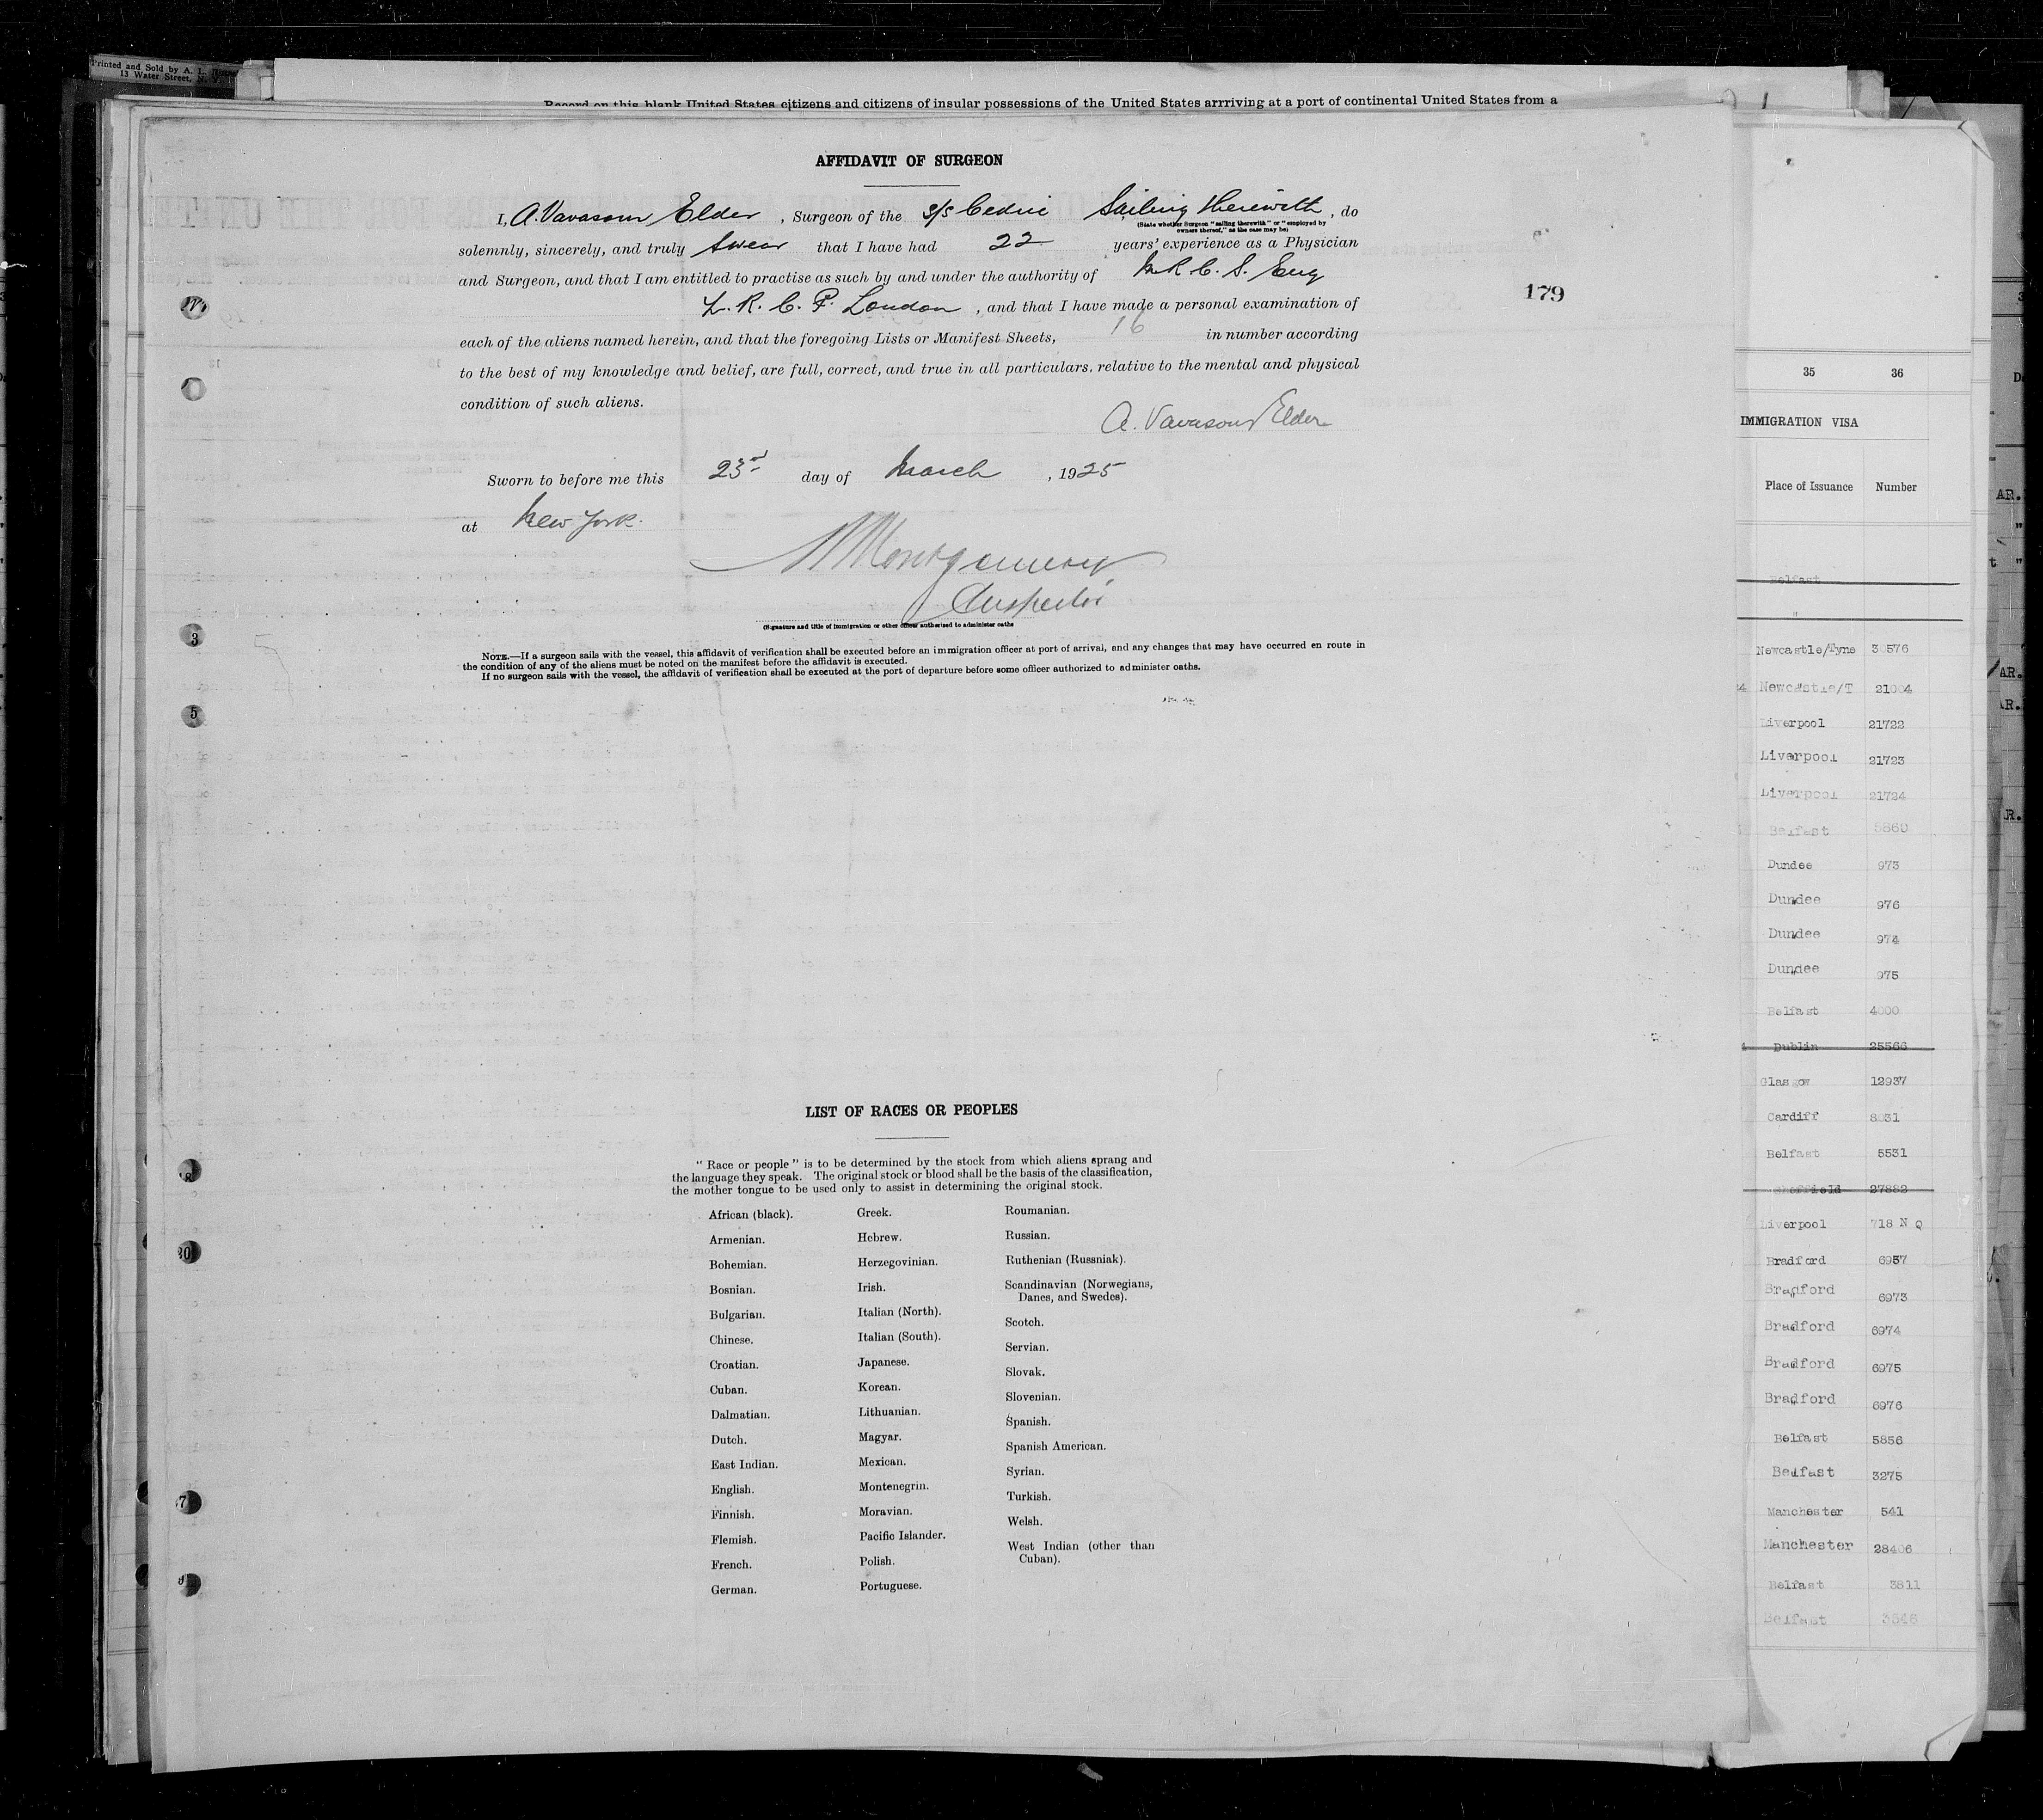 Printed and Sold by A. L.
13 Water Street, N. Y.
Record on this blank United States citizens and citizens of insular possessions of the United States arrriving at a port of continental United States from a
AFFIDAVIT OF SURGEON
I, A. Vavasour Elder, Surgeon of the s/s Cedric Sailing therewith, do
(State whether Surgeon "sailing therewith" or "employed by
owners thereof," as the case may be)
solemnly, sincerely, and truly swear that I have had 22 years' experience as a Physician
and Surgeon, and that I am entitled to practise as such by and under the authority of M.R.C.S. Eng
L.R.C.P. London, and that I have made a personal examination of
179
each of the aliens named herein, and that the foregoing Lists or Manifest Sheets, 16 in number according
to the best of my knowledge and belief, are full, correct, and true in all particulars, relative to the mental and physical
condition of such aliens.
A. Vavasour Elder
Sworn to before me this 23rd day of March, 1925
at New York.
Montgomery
Inspector
(Signature and title of immigration or other officer authorized to administer oaths
NOTE.—If a surgeon sails with the vessel, this affidavit of verification shall be executed before an immigration officer at port of arrival, and any changes that may have occurred en route in
the condition of any of the aliens must be noted on the manifest before the affidavit is executed.
If no surgeon sails with the vessel, the affidavit of verification shall be executed at the port of departure before some officer authorized to administer oaths.
LIST OF RACES OR PEOPLES
"Race or people" is to be determined by the stock from which aliens sprang and
the language they speak. The original stock or blood shall be the basis of the classification,
the mother tongue to be used only to assist in determining the original stock.
African (black).
Armenian.
Bohemian.
Bosnian.
Bulgarian.
Chinese.
Croatian.
Cuban.
Dalmatian.
Dutch.
East Indian.
English.
Finnish.
Flemish.
French.
German.
Greek.
Hebrew.
Herzegovinian.
Irish.
Italian (North).
Italian (South).
Japanese.
Korean.
Lithuanian.
Magyar.
Mexican.
Montenegrin.
Moravian.
Pacific Islander.
Polish.
Portuguese.
Roumanian.
Russian.
Ruthenian (Russniak).
Scandinavian (Norwegians,
Danes, and Swedes).
Scotch.
Servian.
Slovak.
Slovenian.
Spanish.
Spanish American.
Syrian.
Turkish.
Welsh.
West Indian (other than
Cuban).
35 36
IMMIGRATION VISA
Place of Issuance Number
Belfast
Newcastle/Tyne 30576
Newcastle/T 21004
Liverpool 21722
Liverpool 21723
Liverpool 21724
Belfast 5860
Dundee 973
Dundee 976
Dundee 974
Dundee 975
Belfast 4000
Dublin 25566
Glasgow 12937
Cardiff 8031
Belfast 5531
Sheffield 27882
Liverpool 718 N Q
Bradford 6957
Bradford 6973
Bradford 6974
Bradford 6975
Bradford 6976
Belfast 5856
Belfast 3275
Manchester 541
Manchester 28406
Belfast 3811
Belfast 3546